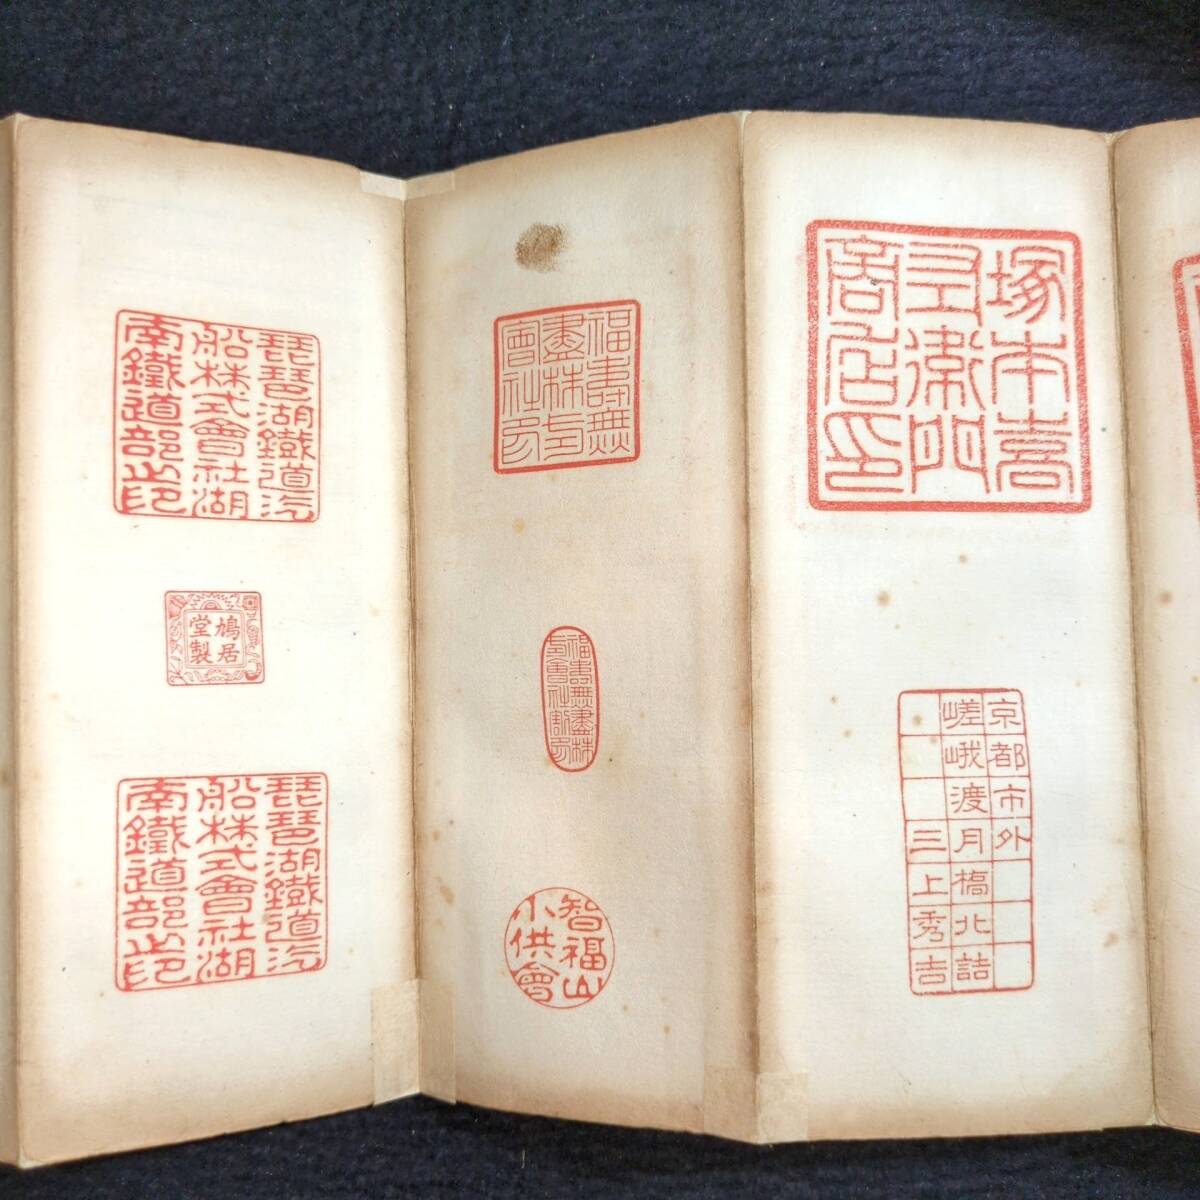 塚本喜
左衛門
商店印
京都市外
嵯峨渡月橋北詰
三上秀吉
福壽無
盡株式
會社印
福壽無盡株
式會社割印
智福山
小供會
琵琶湖鐵道汽
船株式會社湖
南鐵道部之印
鳩居
堂製
琵琶湖鐵道汽
船株式會社湖
南鐵道部之印